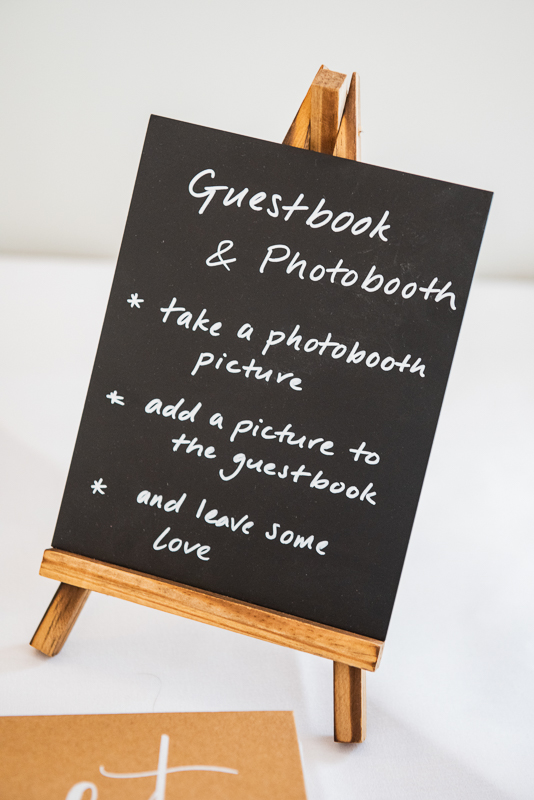 Guestbook
& Photobooth
* take a photobooth
picture
* add a picture to
the guestbook
* and leave some
love